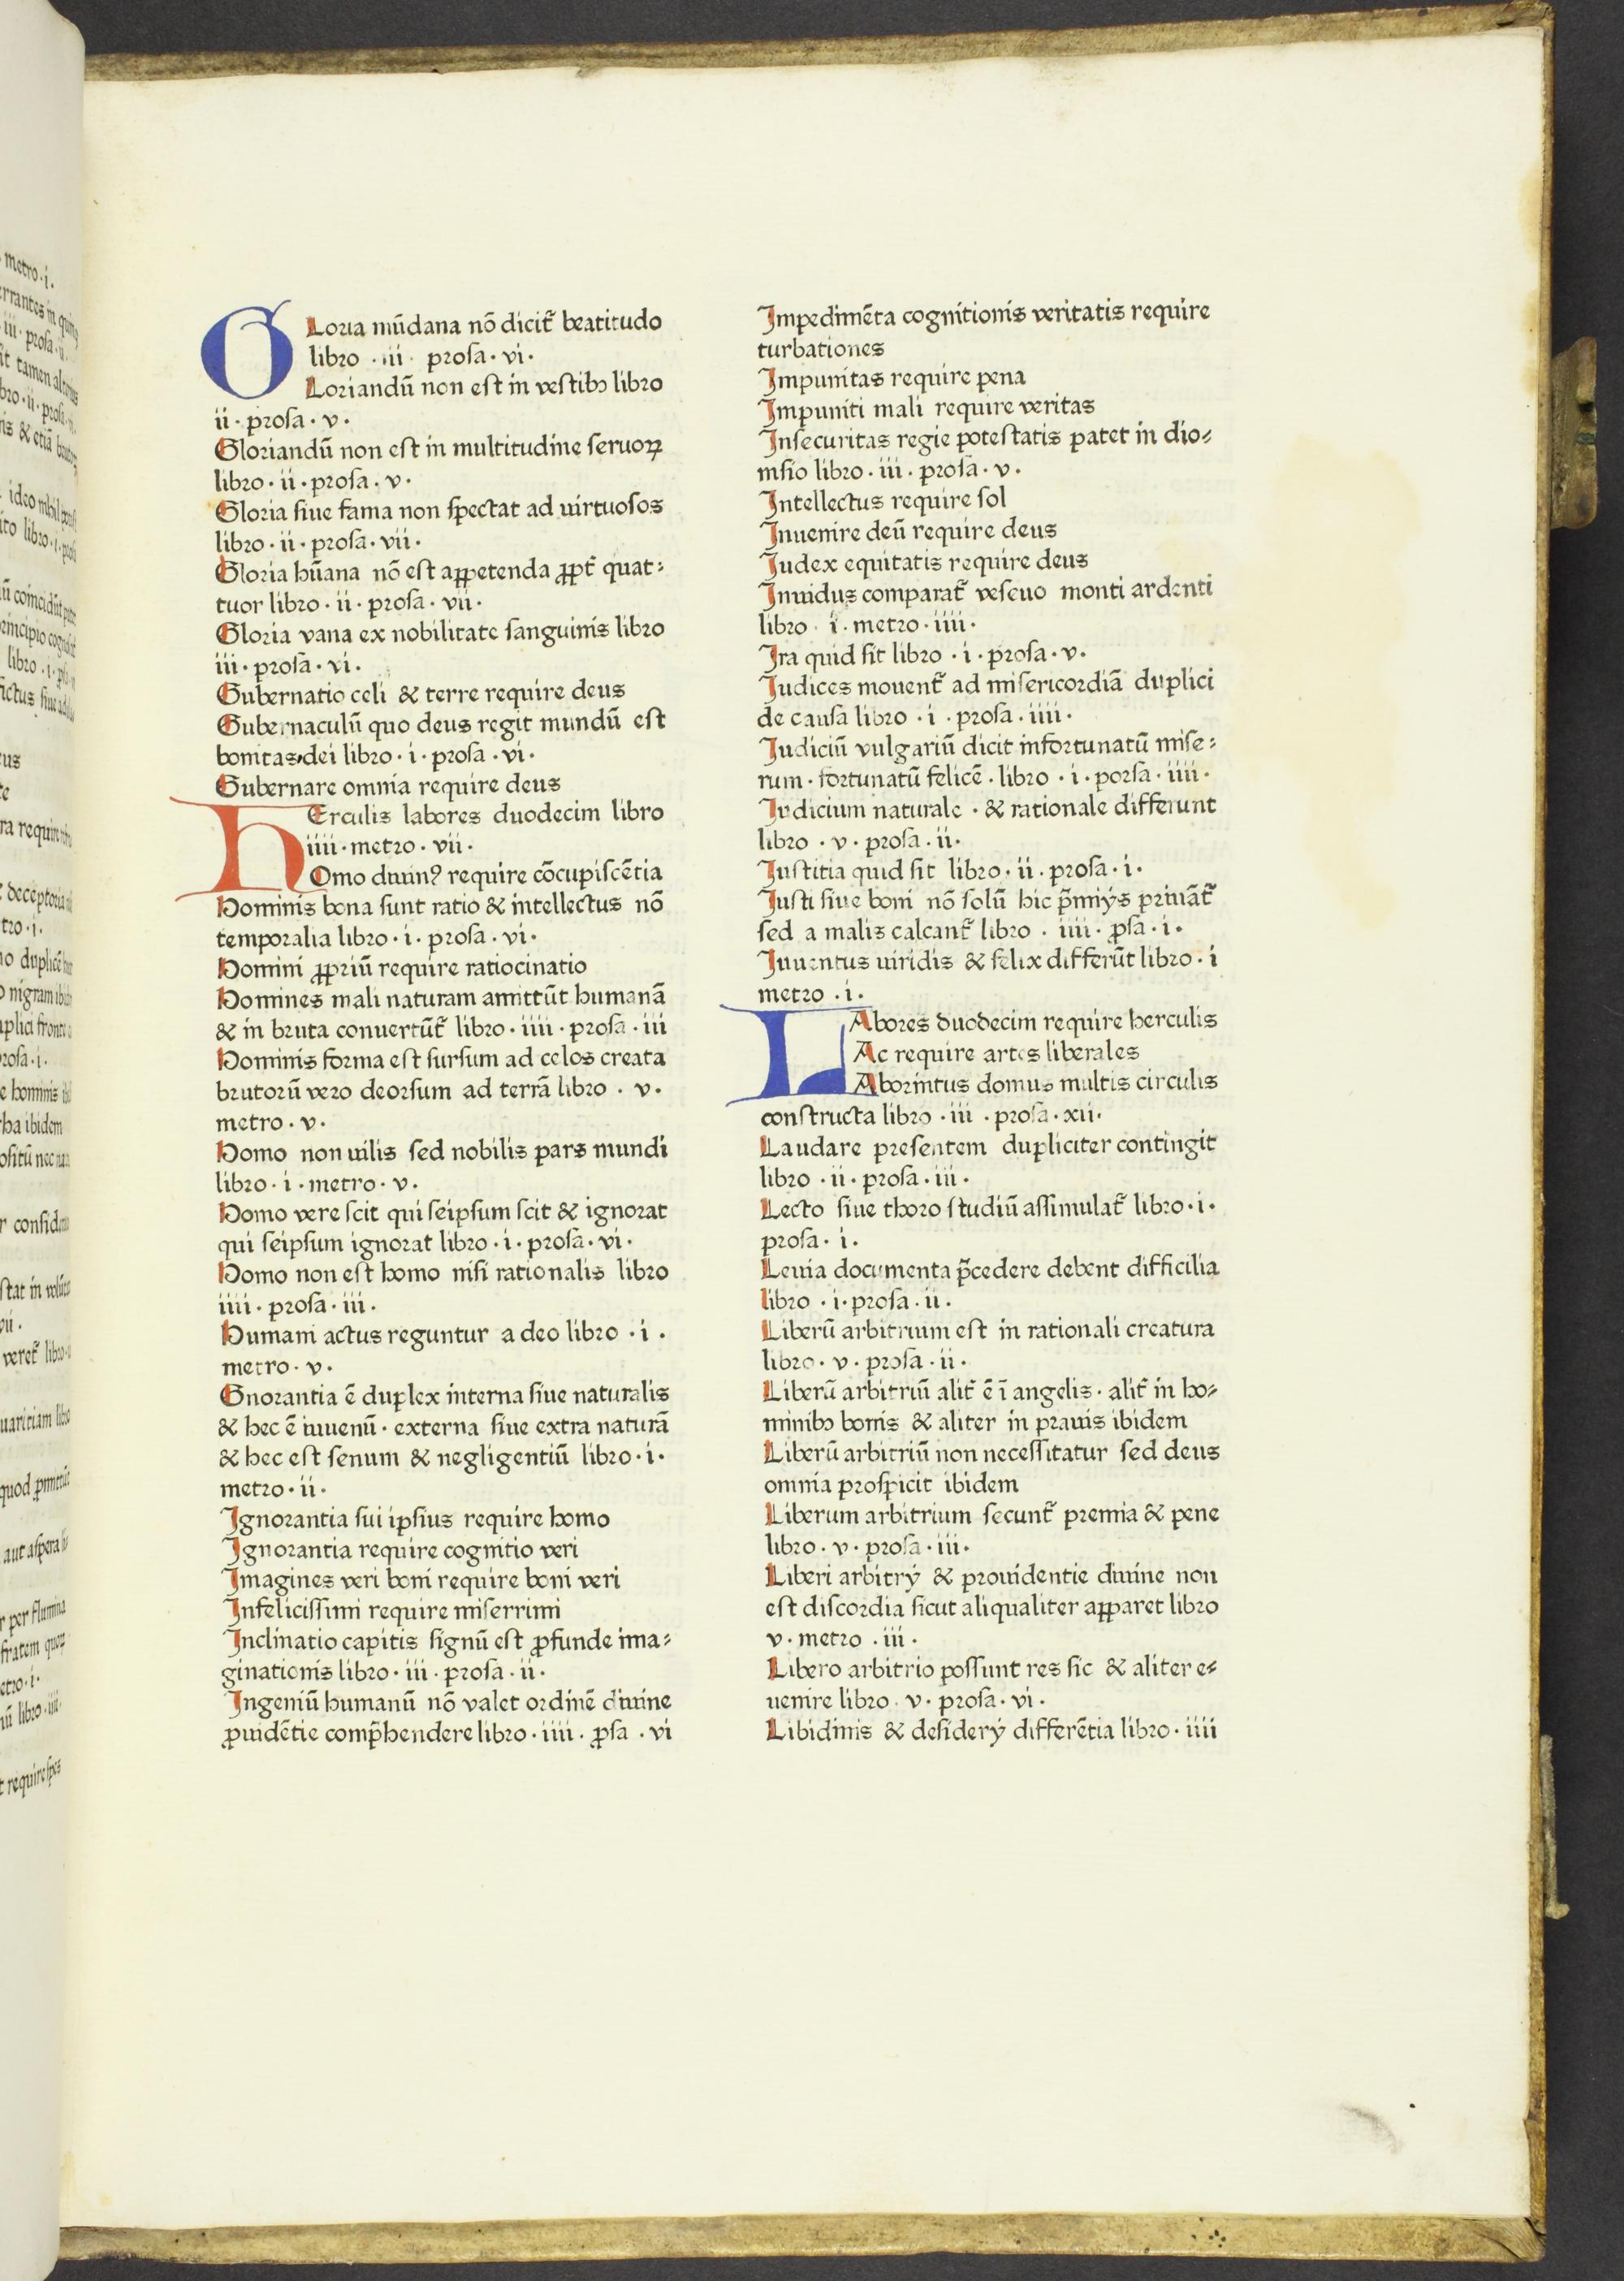 GLoria mūdana nō dicit᷑ beatitudo
libro · iii · prosa · vi ·
Loriandū non est in vestibꝫ libro
ii · prosa · v ·
Gloriandū non est in multitudine seruoꝝ
libro · ii · prosa · v ·
Gloria siue fama non spectat ad uirtuosos
libro · ii · prosa · vii ·
Gloria hūana nō est appetenda ꝓpt᷑ quat⸗
tuor libro · ii · prosa · vii ·
Gloria vana ex nobilitate sanguinis libro
iii · prosa · vi ·
Gubernatio celi & terre require deus
Gubernaculū quo deus regit mundū est
bonitas dei libro · i · prosa · vi ·
Gubernare omnia require deus
HErculis labores duodecim libro
iiii · metro · vii ·
Omo diuinꝰ require cōcupiscētia
Hominis bona sunt ratio & intellectus nō
temporalia libro · i · prosa · vi ·
Homini ꝓpriū require ratiocinatio
Homines mali naturam amittūt humanā
& in bruta conuertūt᷑ libro · iiii · prosa · iii
Hominis forma est sursum ad celos creata
brutorū vero deorsum ad terrā libro · v ·
metro · v ·
Homo non uilis sed nobilis pars mundi
libro · i · metro · v ·
Homo vere scit qui seipsum scit & ignorat
qui seipsum ignorat libro · i · prosa · vi ·
Homo non est homo nisi rationalis libro
iiii · prosa · iii ·
Humani actus reguntur a deo libro · i ·
metro · v ·
Gnorantia ē duplex interna siue naturalis
& hec ē iuuenū · externa siue extra naturā
& hec est senum & negligentiū libro · i ·
metro · ii ·
Ignorantia sui ipsius require homo
Ignorantia require cognitio veri
Imagines veri boni require boni veri
Infelicissimi require miserrimi
Inclinatio capitis signū est ꝓfunde ima⸗
ginationis libro · iii · prosa · ii ·
Ingeniū humanū nō valet ordinē diuine
ꝓuidētie comp̄hendere libro · iiii · ꝓsa · vi
Impedimēta cognitionis veritatis require
turbationes
Impunitas require pena
Impuniti mali require veritas
Insecuritas regie potestatis patet in dio⸗
nisio libro · iii · prosa · v ·
Intellectus require sol
Inuenire deū require deus
Iudex equitatis require deus
Inuidus comparat᷑ veseuo monti ardenti
libro · i · metro · iiii ·
Ira quid sit libro · i · prosa · v ·
Iudices mouent᷑ ad misericordiā duplici
de causa libro · i · prosa · iiii ·
Iudiciū vulgariū dicit infortunatū mise⸗
rum · fortunatū felicē · libro · i · porsa · iiii ·
Iudicium naturale · & rationale differunt
libro · v · prosa · ii ·
Iustitia quid sit libro · ii · prosa · i ·
Iusti siue boni nō solū hic p̄miijs priuāt᷑
sed a malis calcant᷑ libro · iiii · ꝓsa · i ·
Iuuentus uiridis & felix differūt libro · i
metro · i ·
LAbores duodecim require herculis
Ac require artes liberales
Aborintus domus multis circulis
constructa libro · iii · prosa · xii ·
Laudare presentem dupliciter contingit
libro · ii · prosa · iii ·
Lecto siue thoro studiū assimulat᷑ libro · i ·
prosa · i ·
Leuia documenta p̄cedere debent difficilia
libro · i · prosa · ii ·
Liberū arbitrium est in rationali creatura
libro · v · prosa · ii ·
Liberū arbitriū alit᷑ ē ī angelis · alit᷑ in ho⸗
minibꝫ bonis & aliter in prauis ibidem
Liberū arbitriū non necessitatur sed deus
omnia prospicit ibidem
Liberum arbitrium secunt᷑ premia & pene
libro · v · prosa · iii ·
Liberi arbitrÿ & prouidentie diuine non
est discordia sicut aliqualiter apparet libro
v · metro · iii ·
Libero arbitrio possunt res sic & aliter e⸗
uenire libro · v · prosa · vi ·
Libidinis & desiderÿ differētia libro · iiii